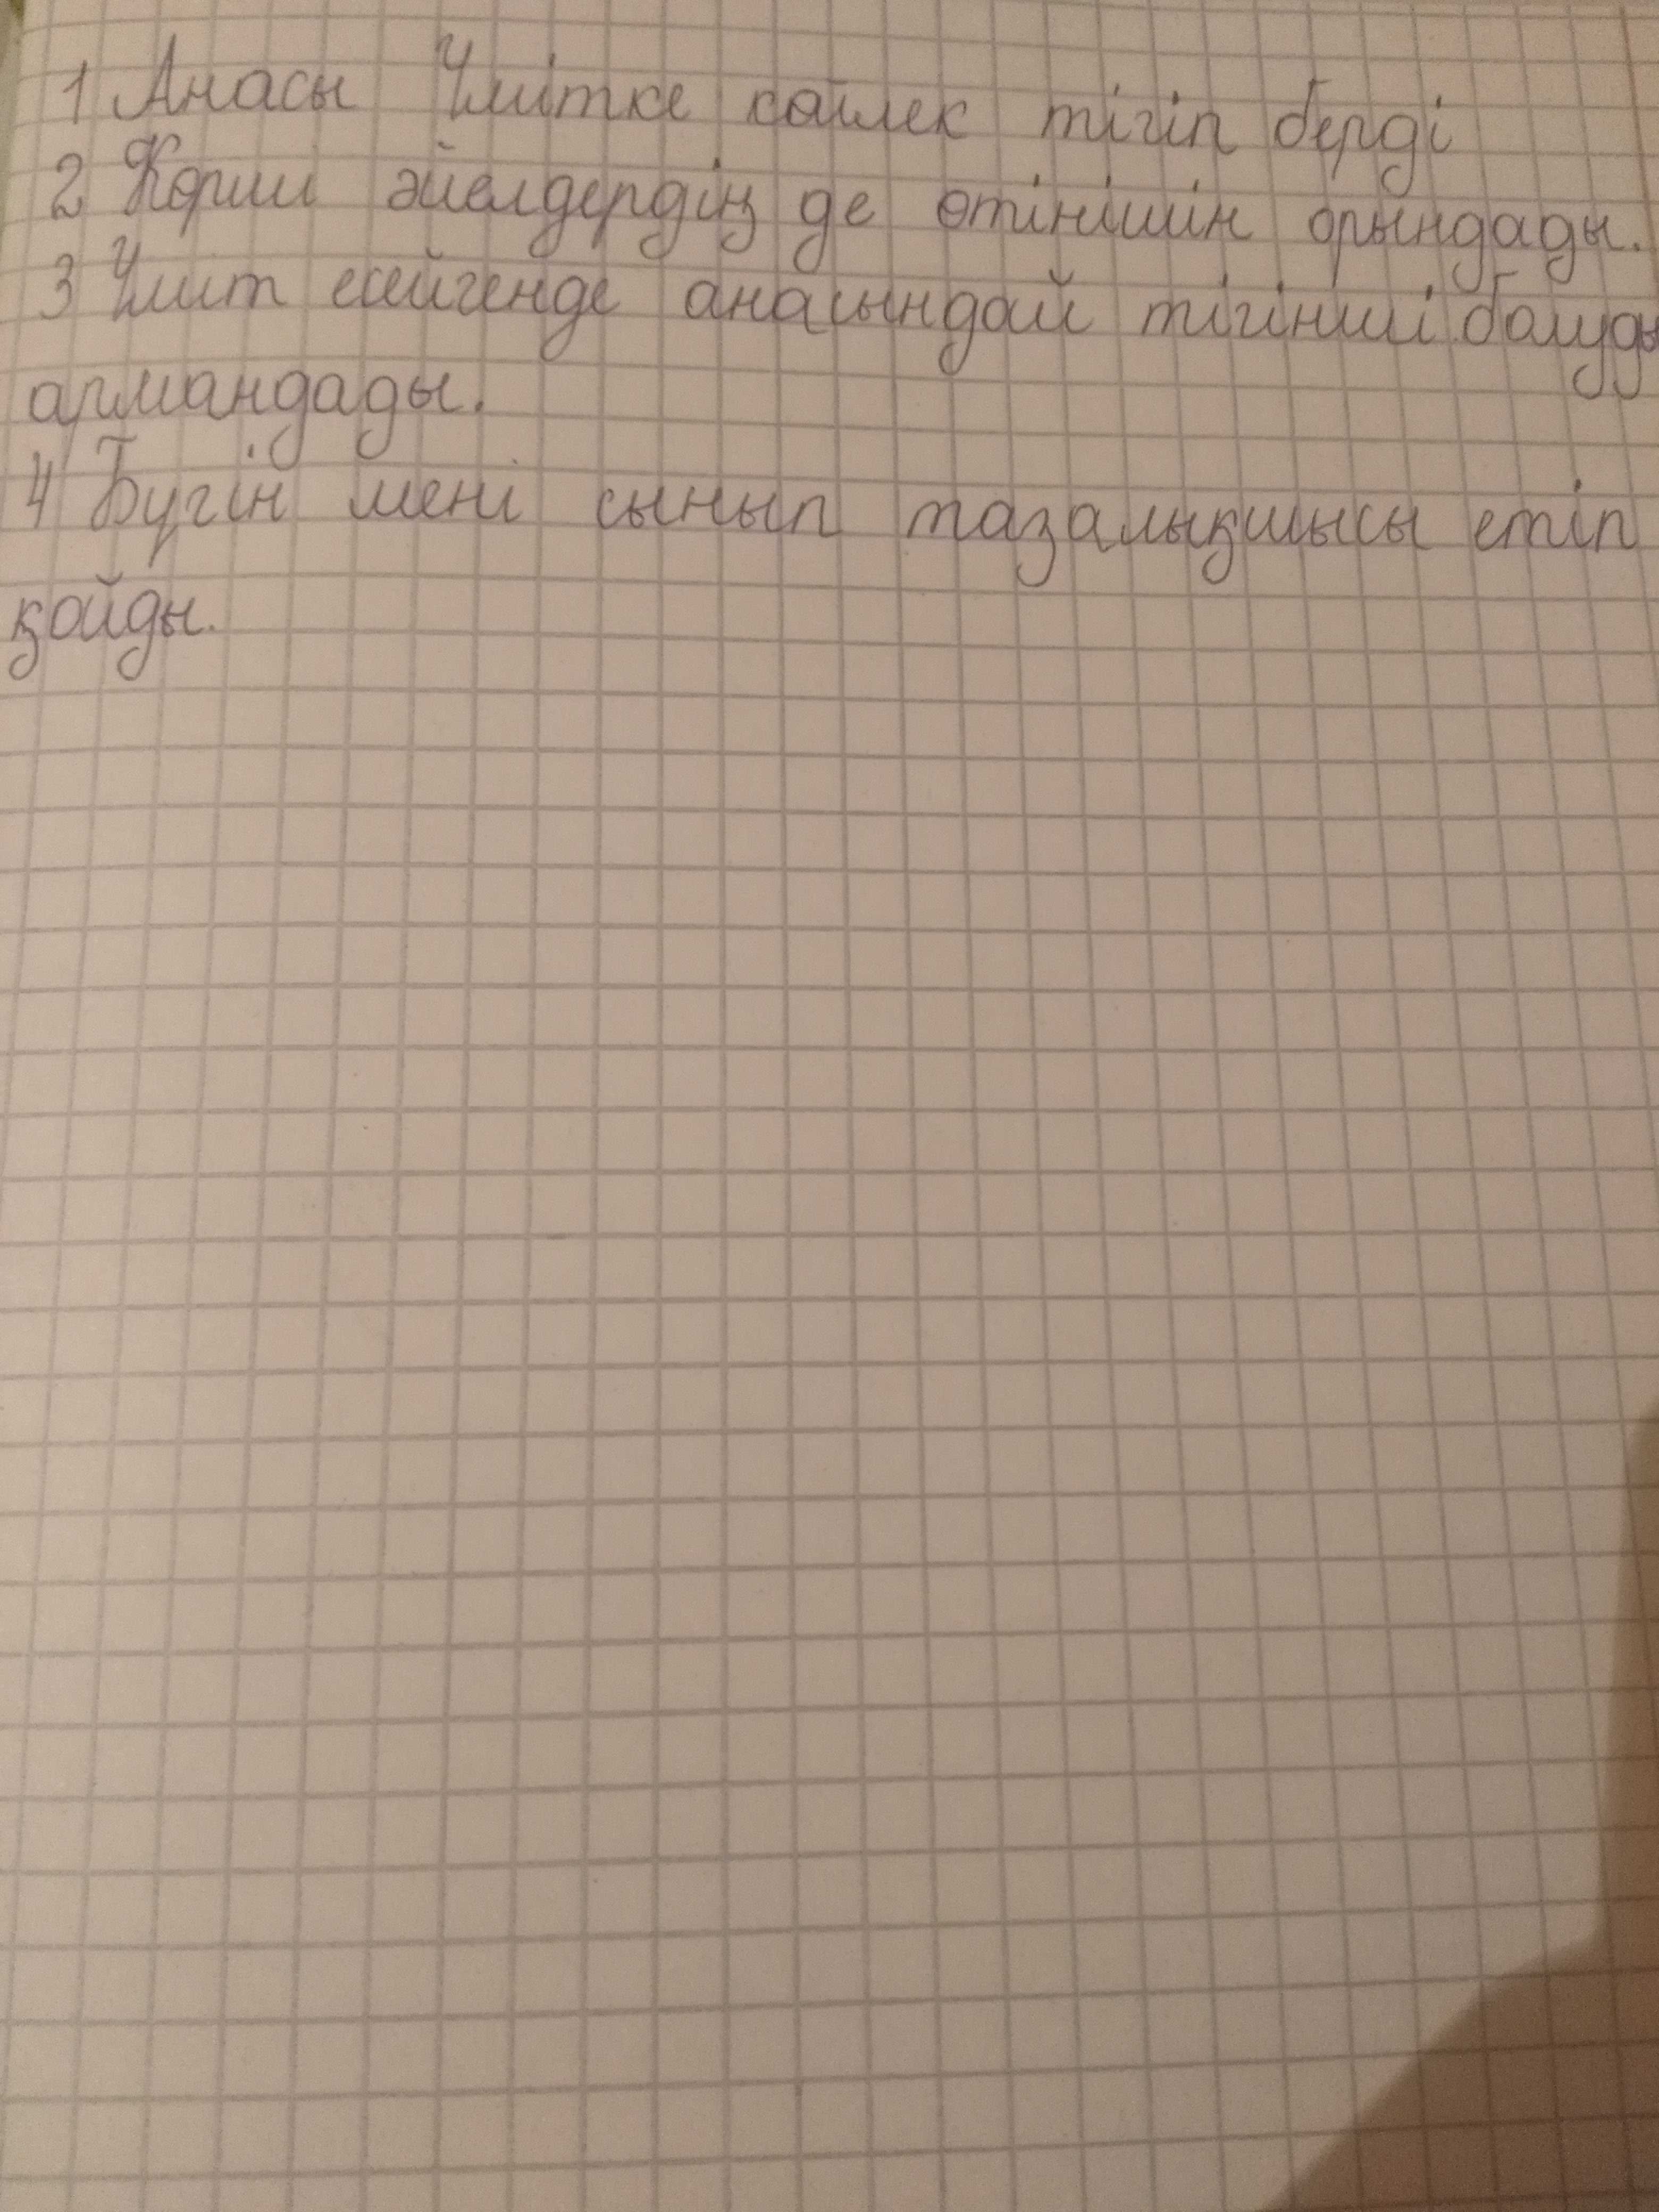 1 Анасы Үмітке көйлек тігіп берді
2 Көрші әйелдердің де өтінішін орындады.
3 Үміт есейгенде анасындай тігінші болуды
армандады.
4 Бүгін мені сынып тазалықшысы етіп
қойды.